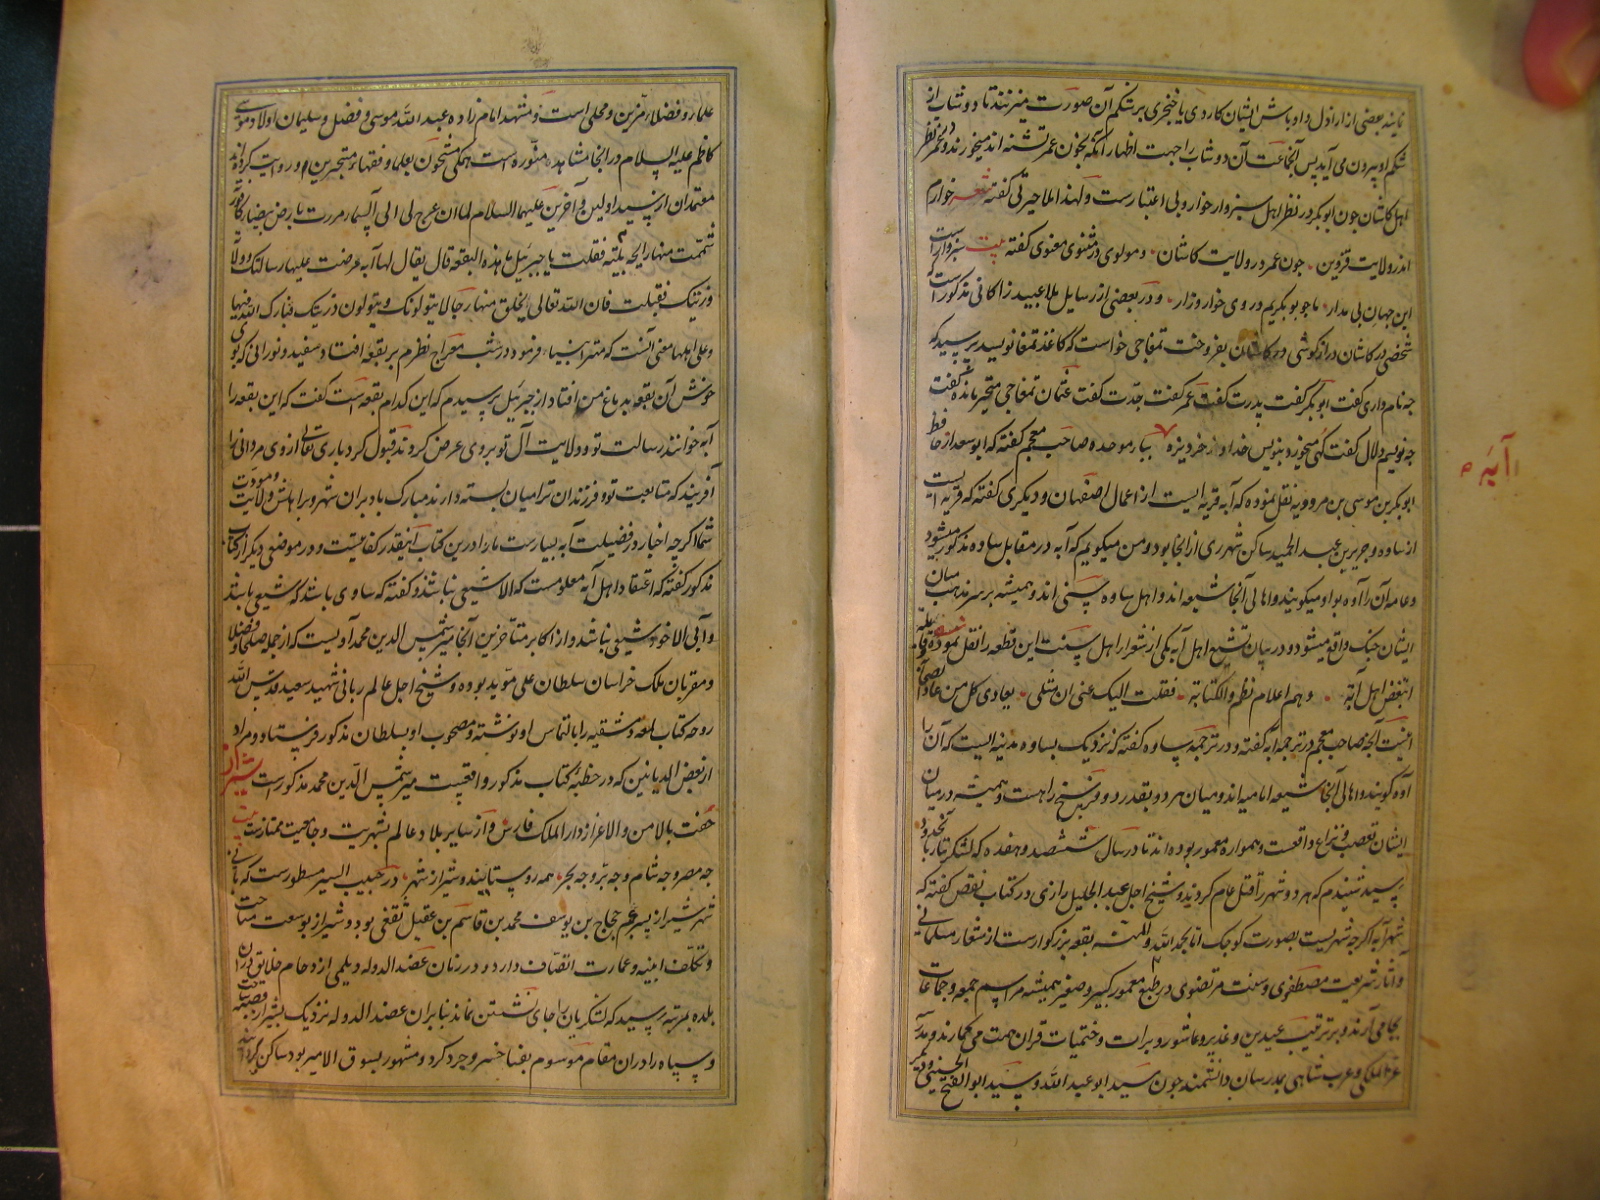 نمایند بعضی از اراذل و اوباش ایشان کاردی یا خنجری بر شکم آن صورت میزنند تا دوشاب از
شکم او بیرون می آید پس آنجماعت آن دوشاب را جهت اظهار آنکه بخون عمر تشنه اند میخورند و عمر نظر
اهل کاشان چون ابوبکر در نظر اهل سبزوار خوار و بی اعتبارست و لهذا املا حیرتی گفته شعر خوارم
اندر ولایت قزوین چون عمر در ولایت کاشان و مولوی در مثنوی معنوی گفته بیت سبزوارست
این جهان بی مدار ما چو بوبکریم در وی خوار و زار و در بعضی از رسایل ملا عبید زاکانی مذکورست که
شخصی در کاشان درازگوشی در کاشان بفروخت تمغاجی خواست که کاغذ تمغا نویسد پرسید که
چه نام داری گفت ابوبکر گفت پدرت گفت عمر گفت جدت گفت عثمان تمغاجی متحیر مانده گفت
چه نویسم دلال گفت میخور و بنویس خداوند خر دیزه ببار موحده صاحب معجم گفته که ابو سعد از حافظ
ابو بکر بن موسی بن مردویه نقل نموده که آبه قریه ایست از اعمال اصفهان و دیگری گفته که قریه ایست
از ساوه و جریر بن عبد الحمید ساکن شهر ری از انجا بود و من میکویم که آبه در مقابل ساوه مذکور میشود
و عامه آن را آوه بواو میکویند و اهالی آنجا شیعه اند و اهل ساوه سنی اند و همیشه بر سر مذهب میان
ایشان جنک واقع میشود و در بیان تشیع اهل آبه یکی از شعرار اهل سنت این قطعه را نقل نموده شعر و قائلة
اتبغض اهل آبة وهم اعلام نظم والکتابة فقلت الیک عنی ان مثلی یعادی کل من عادا الصحابة
اینست آنچه صاحب معجم در ترجمه آبه گفته و در ترجمه ساوه گفته که نزدیک بساوه مدینه ایست که آن را
آوه کویند و اهالی آنجا شیعه امامیه اند و میان هر دو بقدر دو فرسخ راهست و همیشه در میان
ایشان تعصب و نزاع واقعست و همواره معمور بوده اند تا در سال ششصد و هفده که لشکر تتار بآنحدود
رسید شنیدم که هر دو شهر را قتل عام کردند و شیخ اجل عبد الجلیل رازی در کتاب نقض گفته که
شهر آبه اگرچه شهریست بصورت کوچک اما بحمد الله والمنه بقعه بزرکوارست از شعار مسلمانی
و آثار شریعت مصطفوی و سنت مرتضوی در طبع معمور کبیر و صغیر همیشه مراسم جمعه و جماعات
بجا می آرند و بر ترتیب عیدین و غدیر و عاشورو برات و ختمیات قران همت می کمارند و مدرسه
عز الملکی و عرب شاهی بمدرسان دانشمند چون سید ابو عبد الله و سید ابو الفتح الحسینی و دیگر
آبه
علمار و فضلا مزین و محلی است و مشهد امام زاده عبد الله موسی و فضل و سلیمان اولاد موسی
کاظم علیه السلام در انجا مشاهد منوره است همکی مشحون بعلما و فقهاء متبحرین و روایت کرده اند
معتمدان از سید اولین و آخرین علیهما السلام لما ان عرج لی الی السمار مررت بارض بیضار کافوریة
شممت منها رایحه طیبة فقلت یا جبرئیل ما هذه البقعه قال یقال لها آبه عرضت علیها رسالتک و ولایة
ذریتک فقبلت فان الله تعالی یخلق منها رجالا یتولونک و یتولون ذریتک فبارک الله فیها
و علی اهلها معنی آنست که مهتر انبیاء فرمود در شب معراج نظرم بر بقعه افتاد سفید و نورانی که بوی
خوش آن بقعه بدماغ من افتاد از جبرئیل پرسیدم که این کدام بقعه است گفت که این بقعه را
آبه خوانند رسالت تو و ولایت آل تو بروی عرض کردند قبول کرد باری تعالی از وی مردانی را
آفریند که متابعت تو و فرزندان ترا میان بسته دارند مبارک باد بران شهر و بر اهلش ولایت و مودت
شما اگرچه اخبار در فضیلت آبه بسیارست ما را درین کتاب اینقدر کفایتست و در موضعی دیگر از کتاب
مذکور گفته که اعتقاد اهل آبه معلومست که الا شیعی نباشند و گفته که ساوی باشد که شیعی باشد
و آبی الا خود شیعی نباشد و از اکابر متأخرین آنجا میر شمس الدین محمد آویست که از جمله صلحا و فضلا
و مقربان ملک خراسان سلطان علی موید بوده و شیخ اجل عالم ربانی شهید سعید قدس الله
روحه کتاب لمعه دمشقیه را بالتماس او نوشته و مصحوب او بسلطان مذکور فرستاد و مراد
از بعض الدیانین که در خطبه کتاب مذکور واقعست میر شمس الدین محمد مذکورست شیراز
حفت بالامن والاعزاز دار الملک فارس و از سایر بلاد عالم بشهرت و جامعیت ممتازست بیت
چه مصر و چه شام و چه بر و چه بحر همه روستایند و شیراز شهر در حبیب السیر مسطورست که بانی
شهر شیراز پسر عم حجاج بن یوسف محمد بن قاسم بن عقیل ثقفی بود و شیراز بوسعت ساحت
و تکلف ابنیه و عمارت اتصاف دارد و در زمان عضد الدوله دیلمی ازدحام خلایق دران
بلده بمرتبه رسید که لشکریان را جای نشستن نماند بنابران عضد الدوله نزدیک بشیراز قصبه ساخت
و سپاه را دران مقام موسوم بفنا خسرو جرد کرد و مشهور بسوق الامیر بود ساکن گردانید